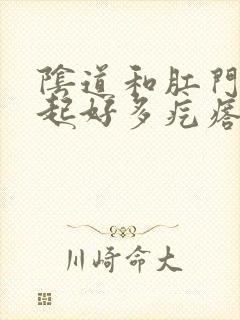 陰道和肛門
起好多疙瘩
川崎命大